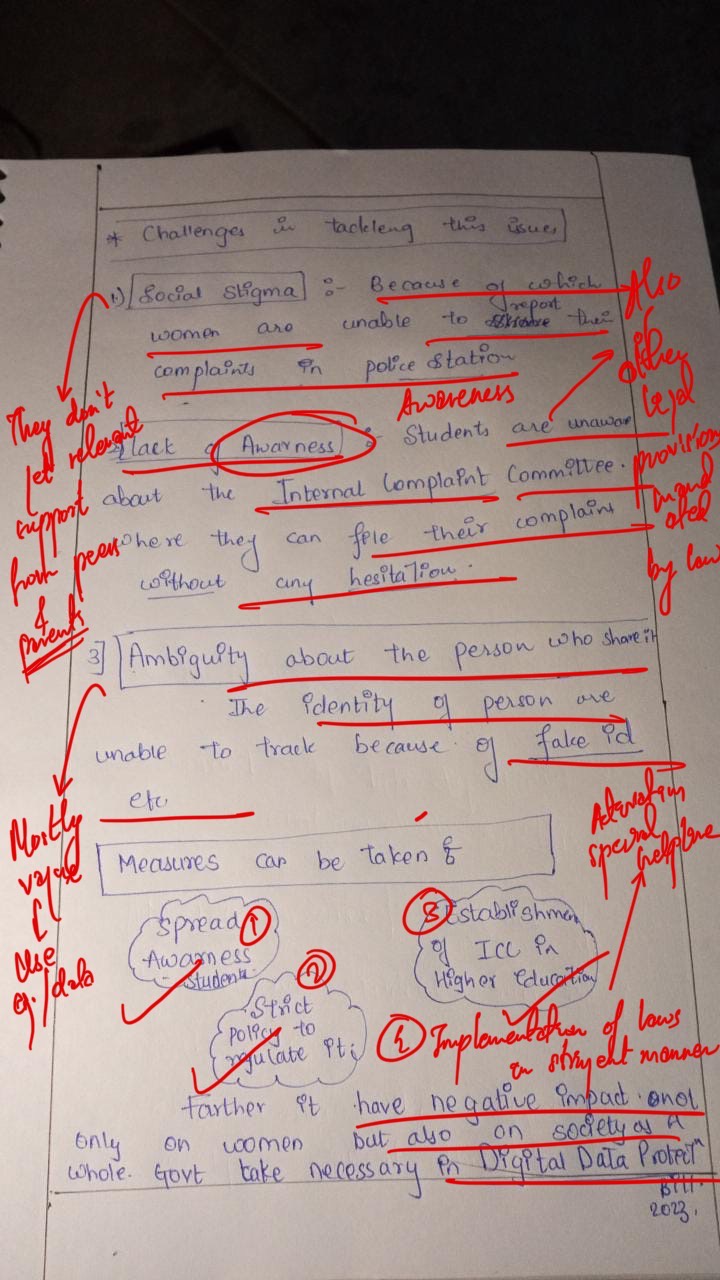 * Challenges in tackleng this issues
1) Social Stigma :- Because of which
report
women are unable to their
complaints in police station
Awareness
Also
other
legal
provision
mandated
by law
They don't
get relevant
support
from peers
&
parents
lack of Awarness :- Students are unaware
about the Internal Complaint Committee.
where they can file their complaint
without any hesitation.
3] Ambiguity about the person who share it
The identity of person are
unable to track because of fake id
etc.
Mostly
vague
Use
eg./data
Measures can be taken :
Activation
special
helpline
Spread 1
Awarness
- Students.
2
Strict
policy to
regulate it;
3 Establishment
of ICC in
Higher Education
4 Implementation of laws
in stringent manner
Farther it have negative impact not
only on women but also on society as a
whole. Govt take necessary in Digital Data Protectn
Bill.
2023.